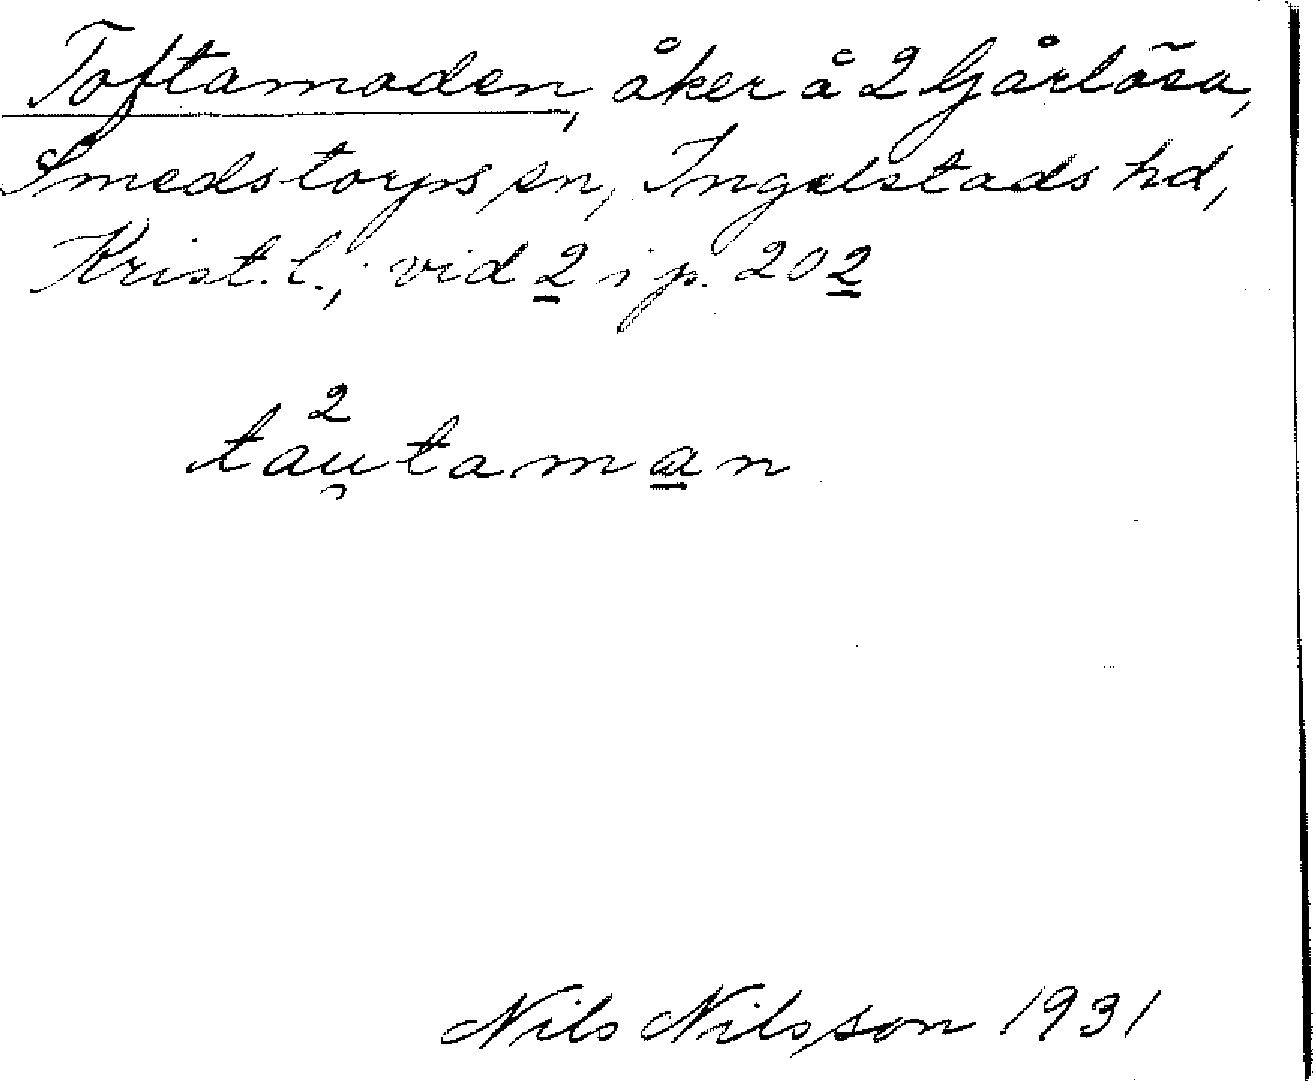 Toftamaden, åker å 2 Gårlösa,
Smedstorps sn, Ingelstads hd,
Krist. l.; vid 2 i p. 202
2
tau̯taman
Nils Nilsson 1931